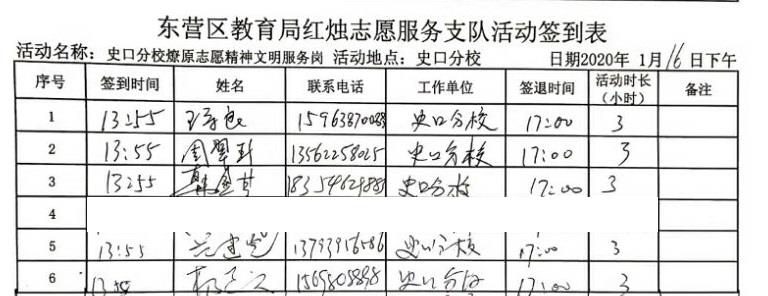 东营区教育局红烛志愿服务支队活动签到表
活动名称：史口分校燎原志愿精神文明服务岗 活动地点：史口分校 日期2020年 1月16日下午
序号 签到时间 姓名 联系电话 工作单位 签退时间 活动时长（小时） 备注
1 13:55 15963870088 史口分校 17:00 3
2 13:55 周翠玲 13562258025 史口分校 17:00 3
3 13:55 史口分校 17:00 3
4
5 13:55 13793916586 史口分校 17:00 3
6 13:55 史口分校 17:00 3